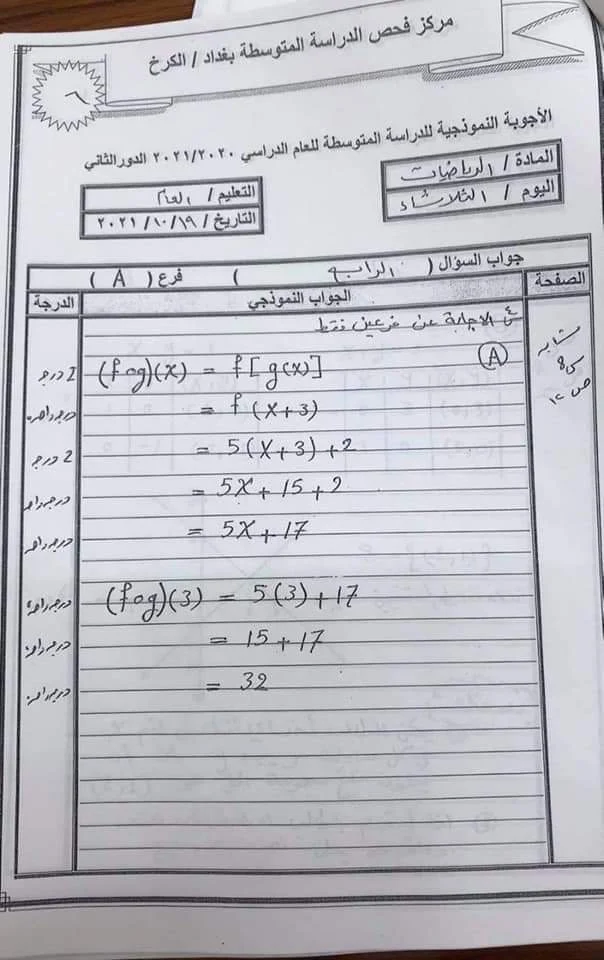 مركز فحص الدراسة المتوسطة بغداد / الكرخ
٦
الأجوبة النموذجية للدراسة المتوسطة للعام الدراسي ٢٠٢١/٢٠٢٠ الدور الثاني
المادة / الرياضيات
التعليم / العام
اليوم / الثلاثاء
التاريخ / ١٩ / ١٠ / ٢٠٢١
جواب السؤال ( الرابع ) فرع ( A )
الصفحة
الجواب النموذجي
الدرجة
الاجابة عن فرعين فقط
مشابه
(A)
(fog)(x) = f[g(x)] 2 درجة
= f(x+3) درجة واحدة
= 5(x+3)+2 2 درجة
= 5x+15+2 درجة واحدة
= 5x+17 درجة واحدة
(fog)(3) = 5(3)+17 درجة واحدة
= 15+17 درجة واحدة
= 32 درجة واحدة